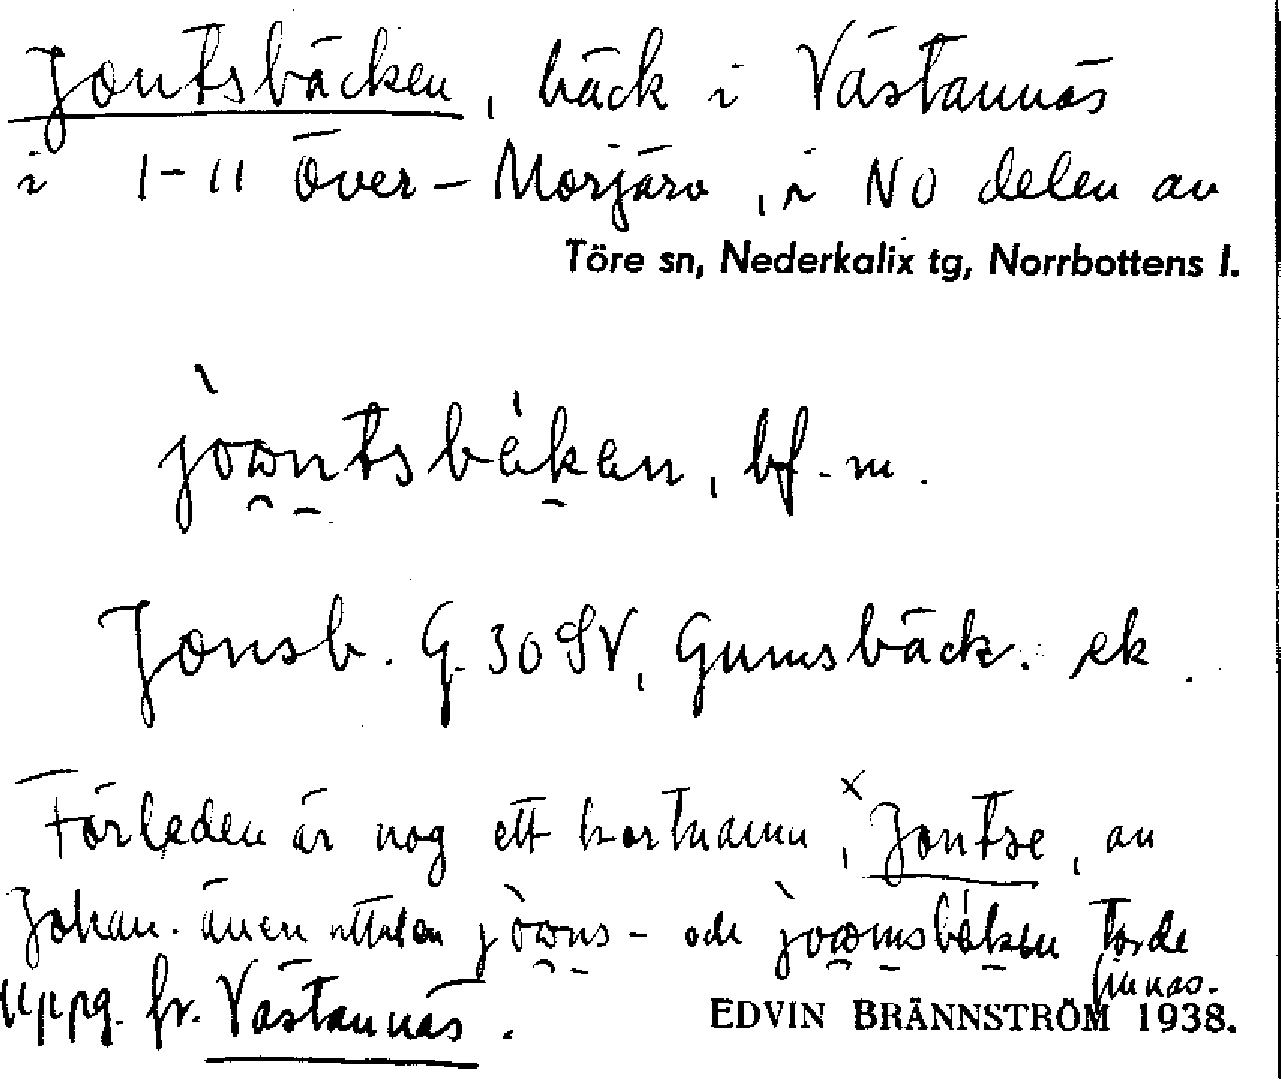 Jontsbäcken, bäck i Västannäs
i 1-11 Över-Morjärv, i NO delen av
Töre sn, Nederkalix tg, Norrbottens l.
bf. m.
Jonsb. G. 30 SV, Gumsbäck. ek.
Förleden är nog ett kortnamn, ˣJontse, av
Johan. även uttalen och torde
finnas.
Uppg. fr. Västannäs.
EDVIN BRÄNNSTRÖM 1938.